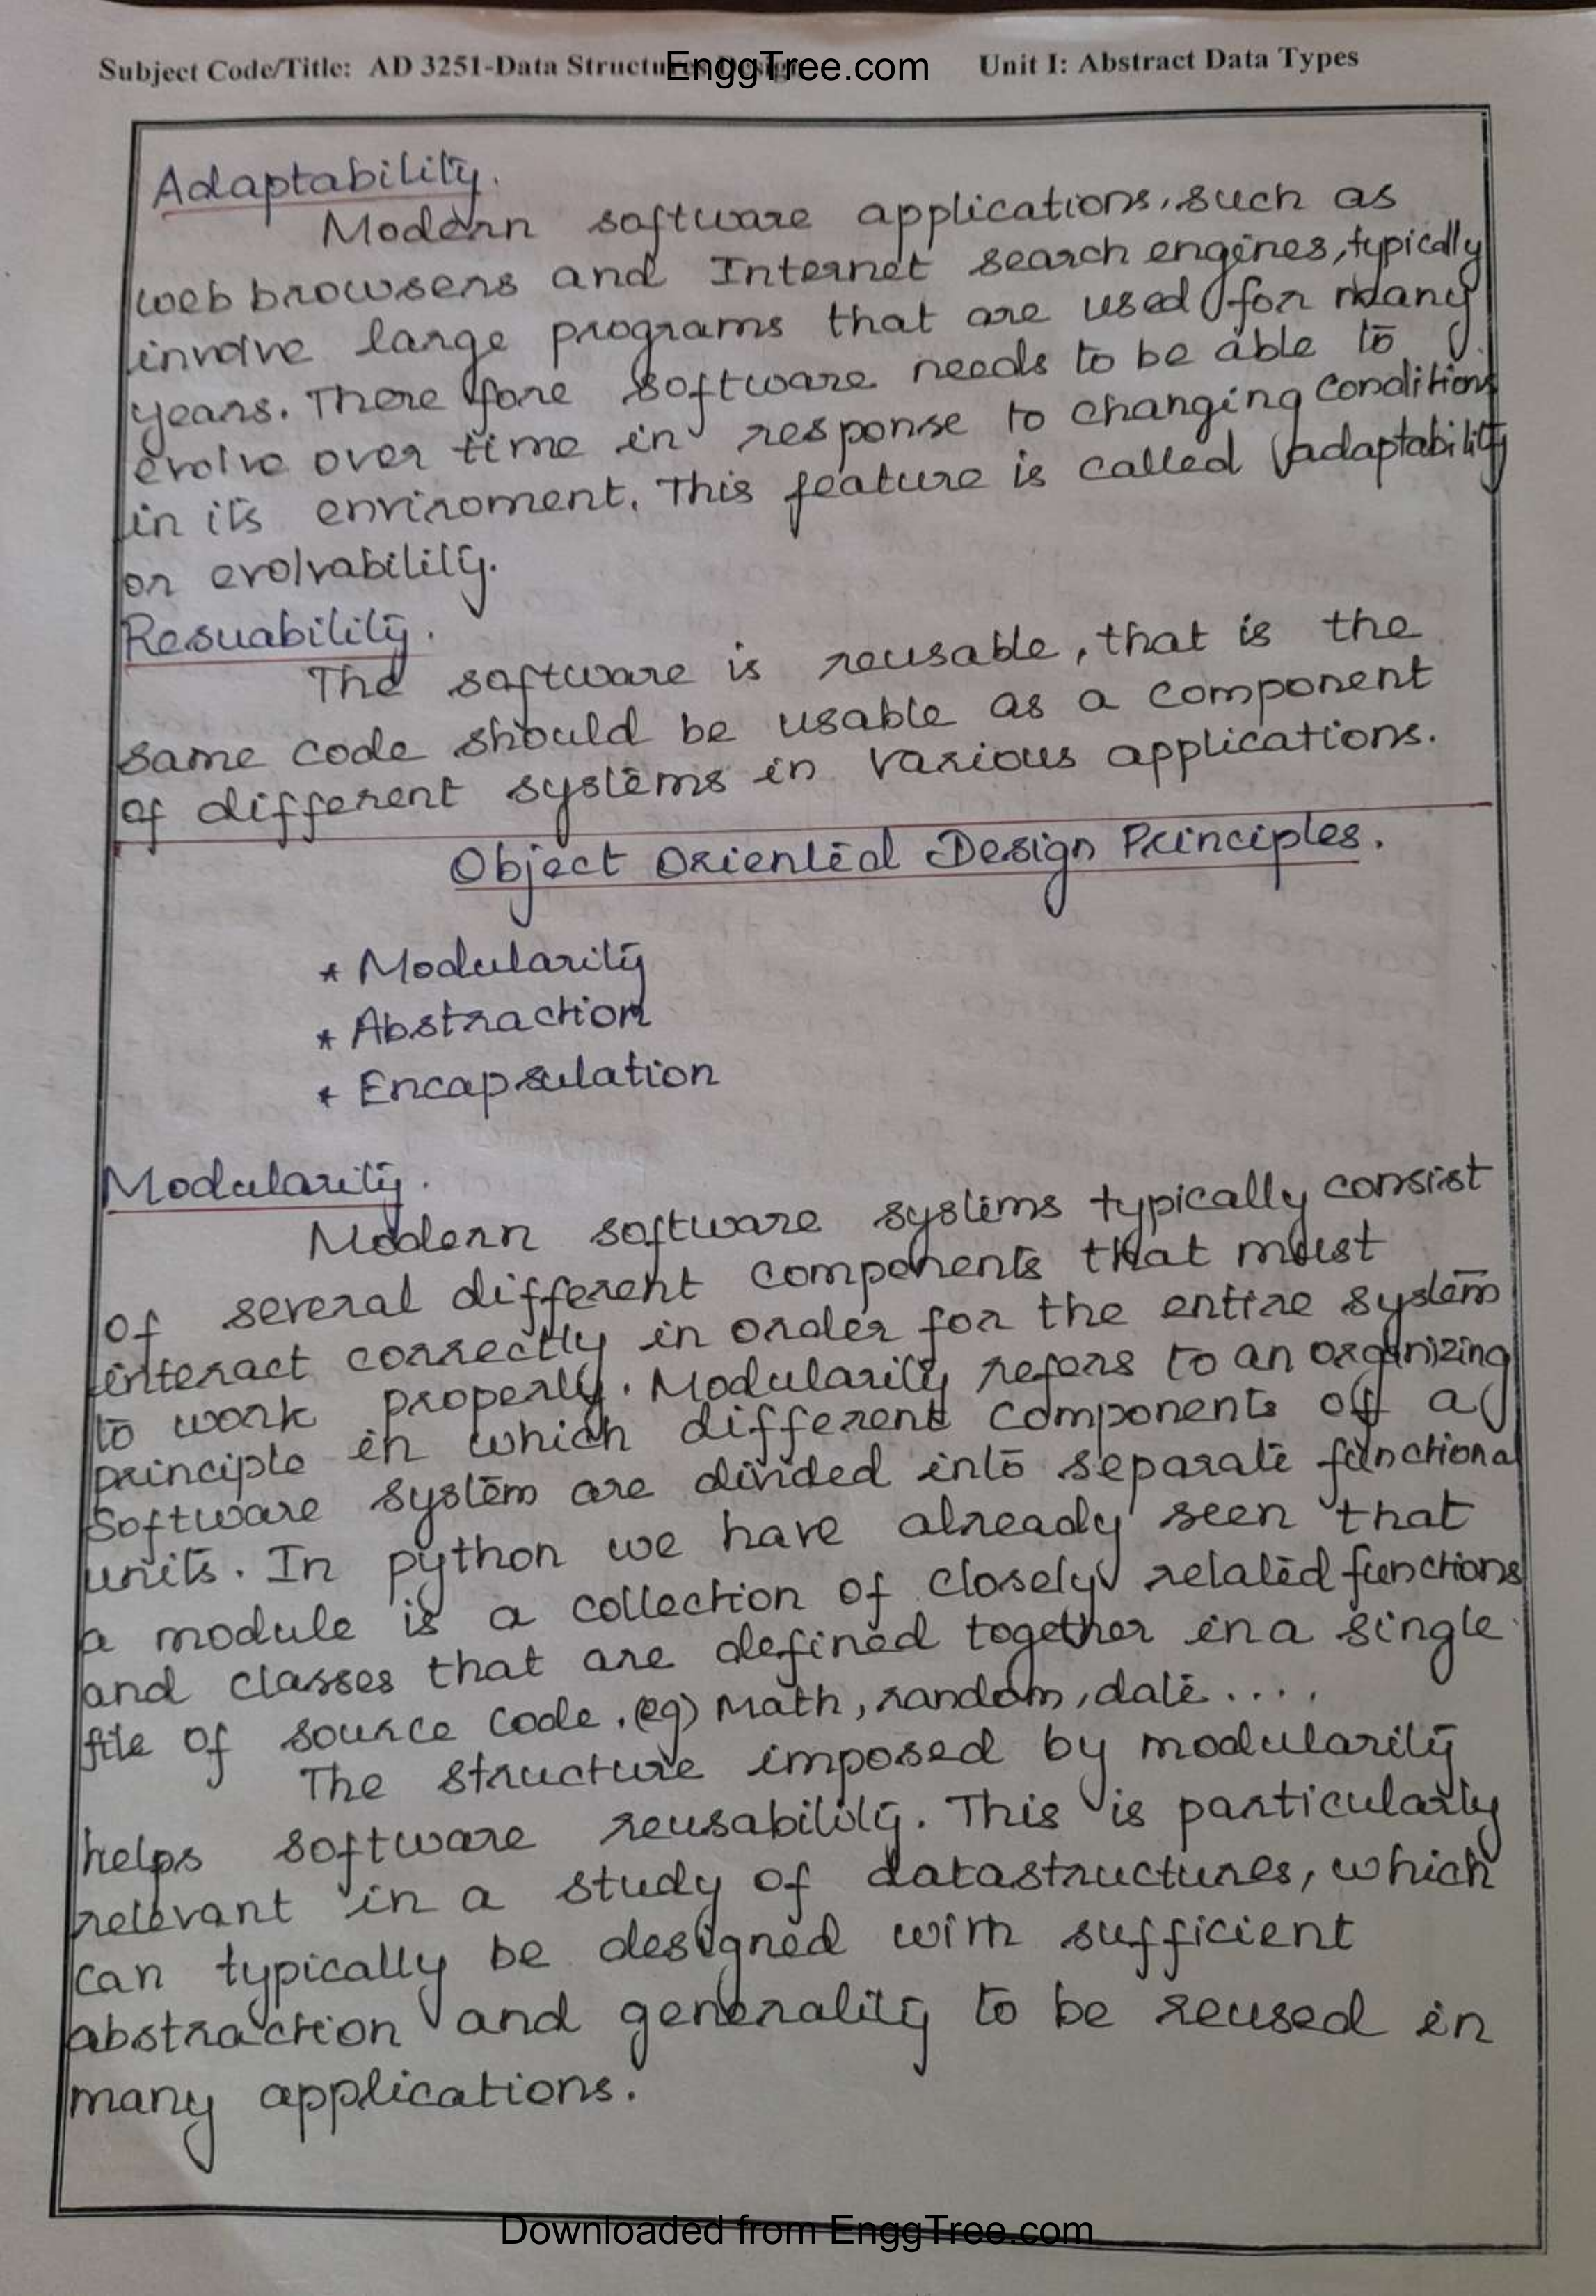 Subject Code/Title: AD 3251-Data Structures Design EnggTree.com Unit I: Abstract Data Types
Adaptability.
Modern software applications, such as
web browsers and Internet search engines, typically
involve large programs that are used for many
years. There fore software needs to be able to
evolve over time in response to changing conditions
in its enviroment. This feature is called adaptability
or evolvability.
Resuability.
The software is reusable, that is the
same code should be usable as a component
of different systems in various applications.
Object Oriented Design Principles.
* Modularity
* Abstraction
* Encapsulation
Modularity.
Modern software systems typically consist
of several different components that must
interact correctly in order for the entire system
to work properly. Modularity refers to an organizing
principle in which different components of a
Software system are divided into separate functional
units. In python we have already seen that
a module is a collection of closely related functions
and classes that are defined together in a single
file of source code. (eg) Math, random, date....
The structure imposed by modularity
helps software reusability. This is particularly
relevant in a study of datastructures, which
can typically be designed with sufficient
abstraction and generality to be reused in
many applications.
Downloaded from EnggTree.com